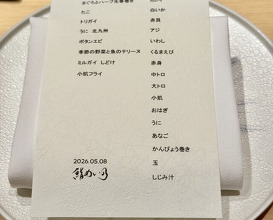 まぐろとハーブ生春巻き
たこ
トリガイ
うに 北九州
ボタンエビ
季節の野菜と魚のテリーヌ
ミルガイ しどけ
小肌フライ
白いか
赤貝
アジ
いわし
くるまえび
赤身
中トロ
大トロ
小肌
おはぎ
うに
あなご
かんぴょう巻き
玉
しじみ汁
2026.05.08